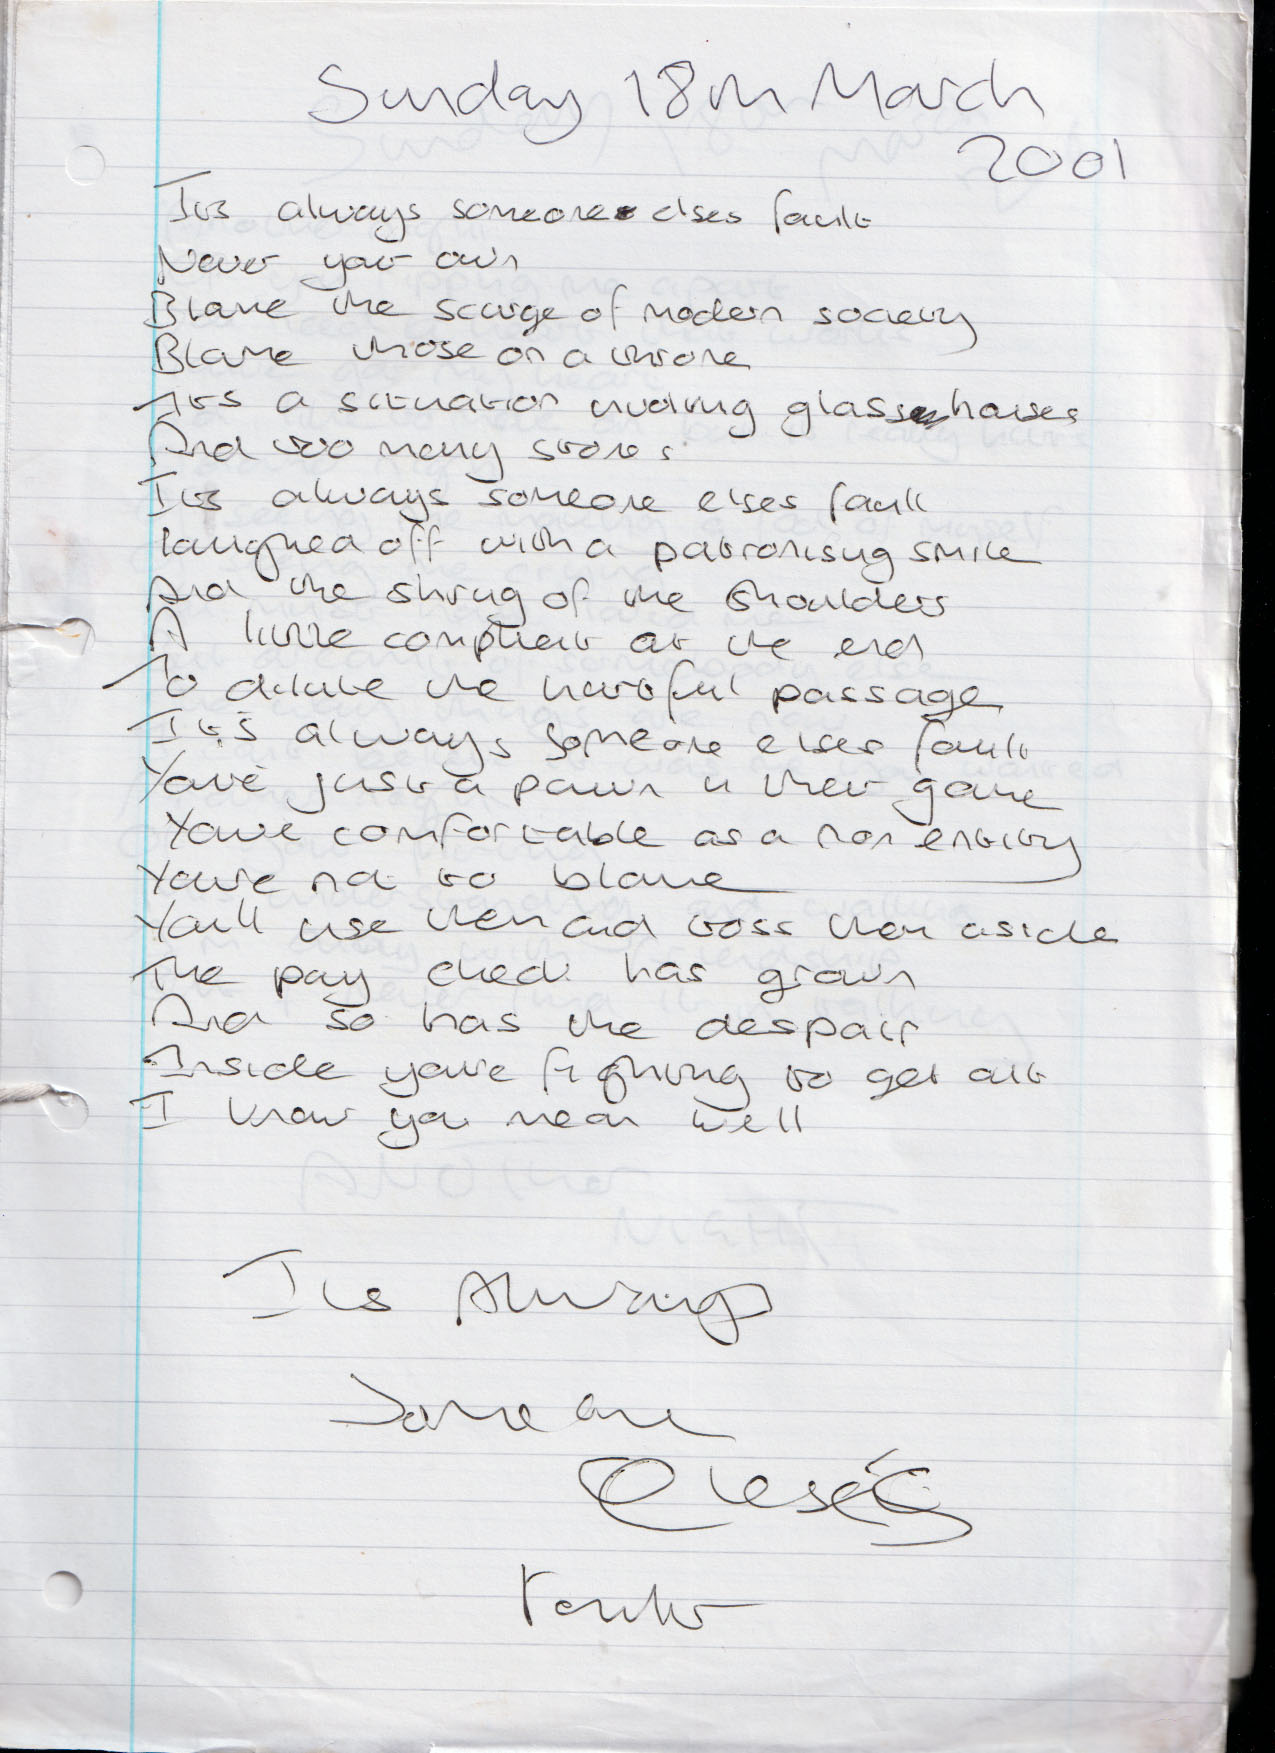 Sunday 18th March
2001
Its always someone elses fault
Never your own
Blame the scurge of modern society
Blame those on a throne
Its a situation involving glass houses
And too many stones
Its always someone elses fault
laughed off with a patronising smile
And the shrug of the shoulders
A little compliment at the end
To dilute the hurtful passage
It's always someone elses fault
You're just a pawn in their game
You're comfortable as a non entity
You're not to blame
You'll use them and toss them aside
The pay check has grown
And so has the despair
Inside you're fighting to get out
I know you mean well
Its Always
Someone
Elses
Fault